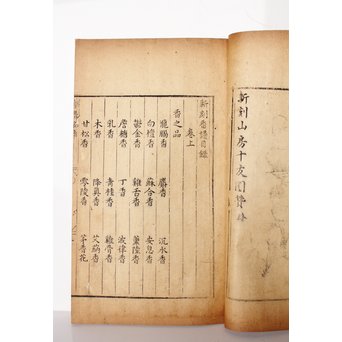 新刻山房十友圖贊
新刻香譜目錄
卷上
香之品
龍腦香 麝香 沉水香
白檀香 蘇合香 安息香
鬱金香 雞舌香 薰陸香
詹糖香 丁香 波律香
乳香 青桂香 雞骨香
木香 降真香 艾蒳香
甘松香 零陵香 茅香花